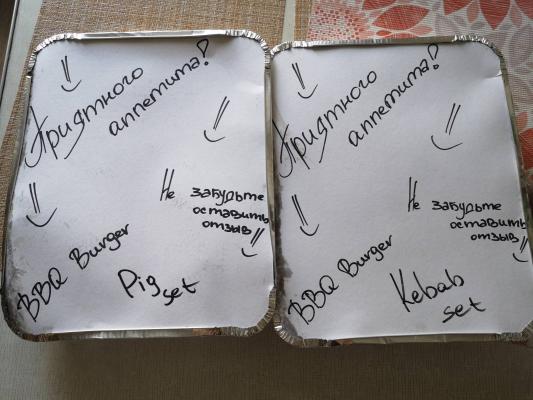 Приятного
аппетита!
Не забудьте
оставить
отзыв
BBQ Burger
Pig set
Приятного
аппетита!
Не забудьте
оставить
отзыв
BBQ Burger
Kebab
set